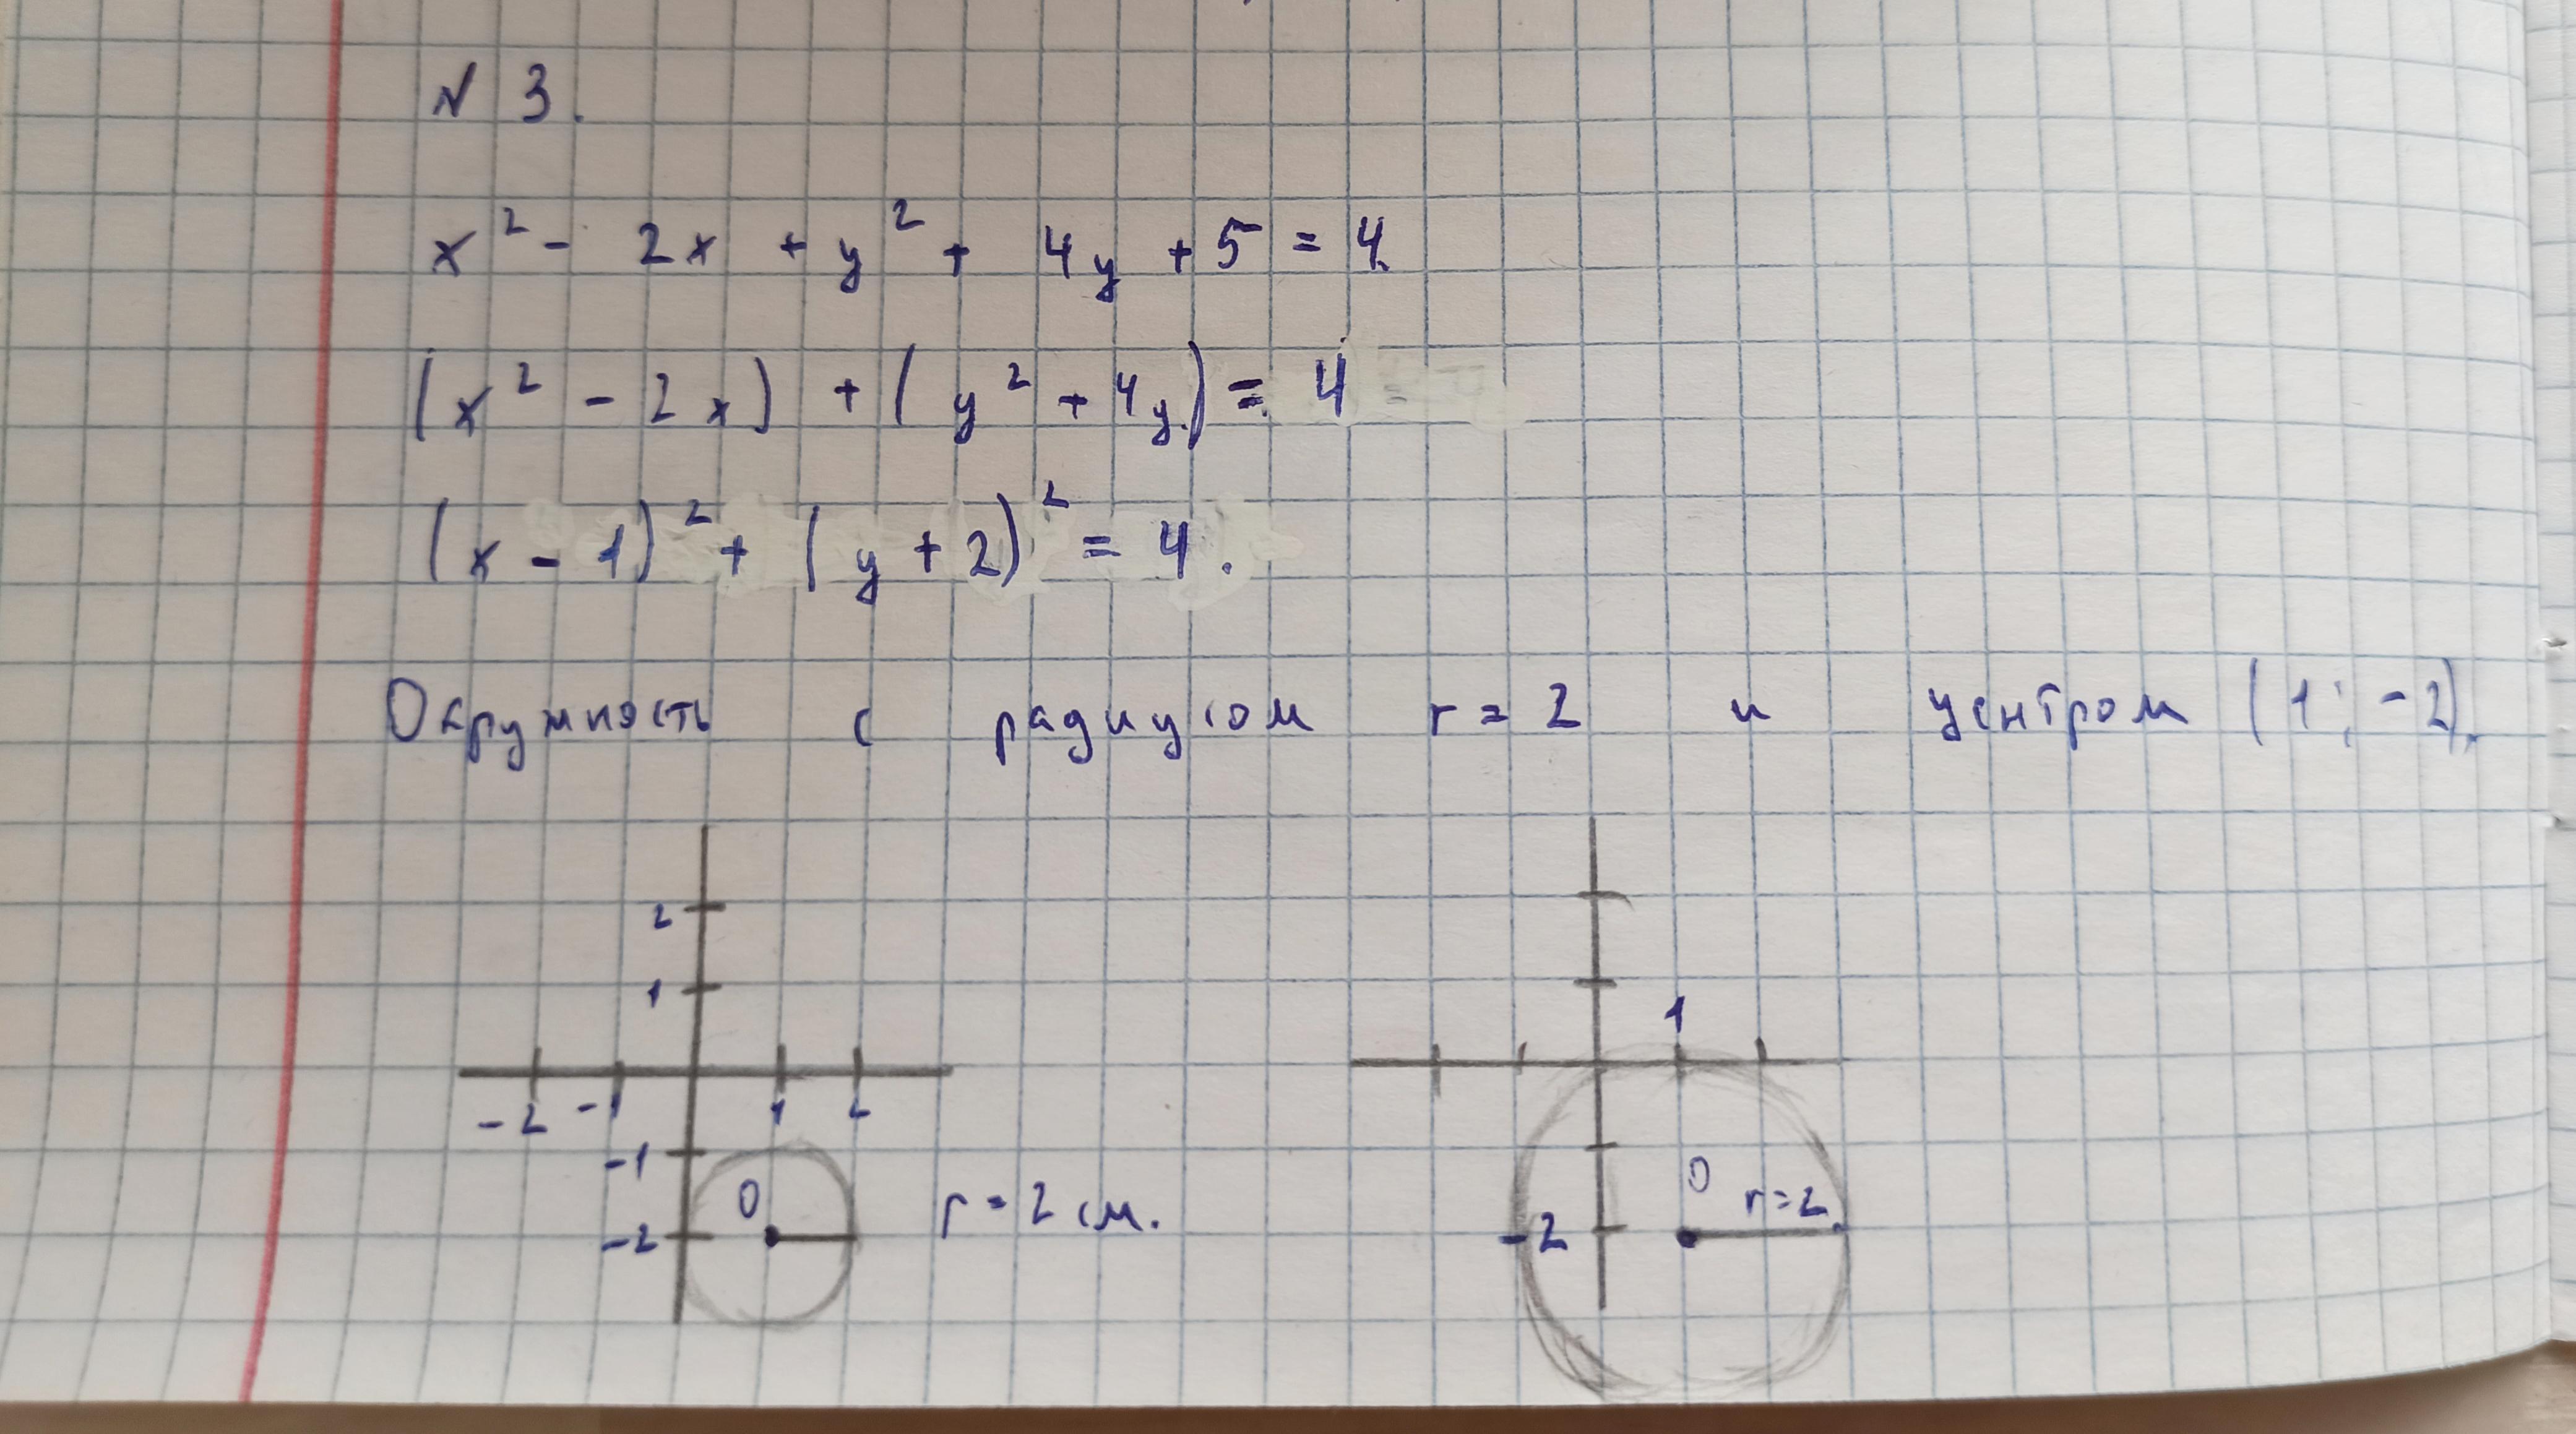 № 3.
x² - 2x + y² + 4y + 5 = 4.
(x² - 2x) + (y² + 4y) = 4
(x - 1)² + (y + 2)² = 4.
Окружность с радиусом r = 2 и центром (1; -2).
2
1
-2 -1 1 2
-1
-2
0
r = 2 см.
1
0
r = 2.
-2